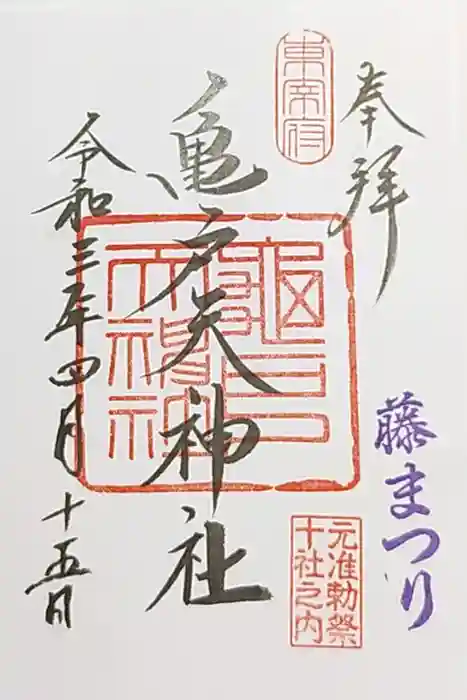 奉拝
藤まつり
東宰府
亀戸天神社
元准勅祭
十社之内
令和三年四月十五日